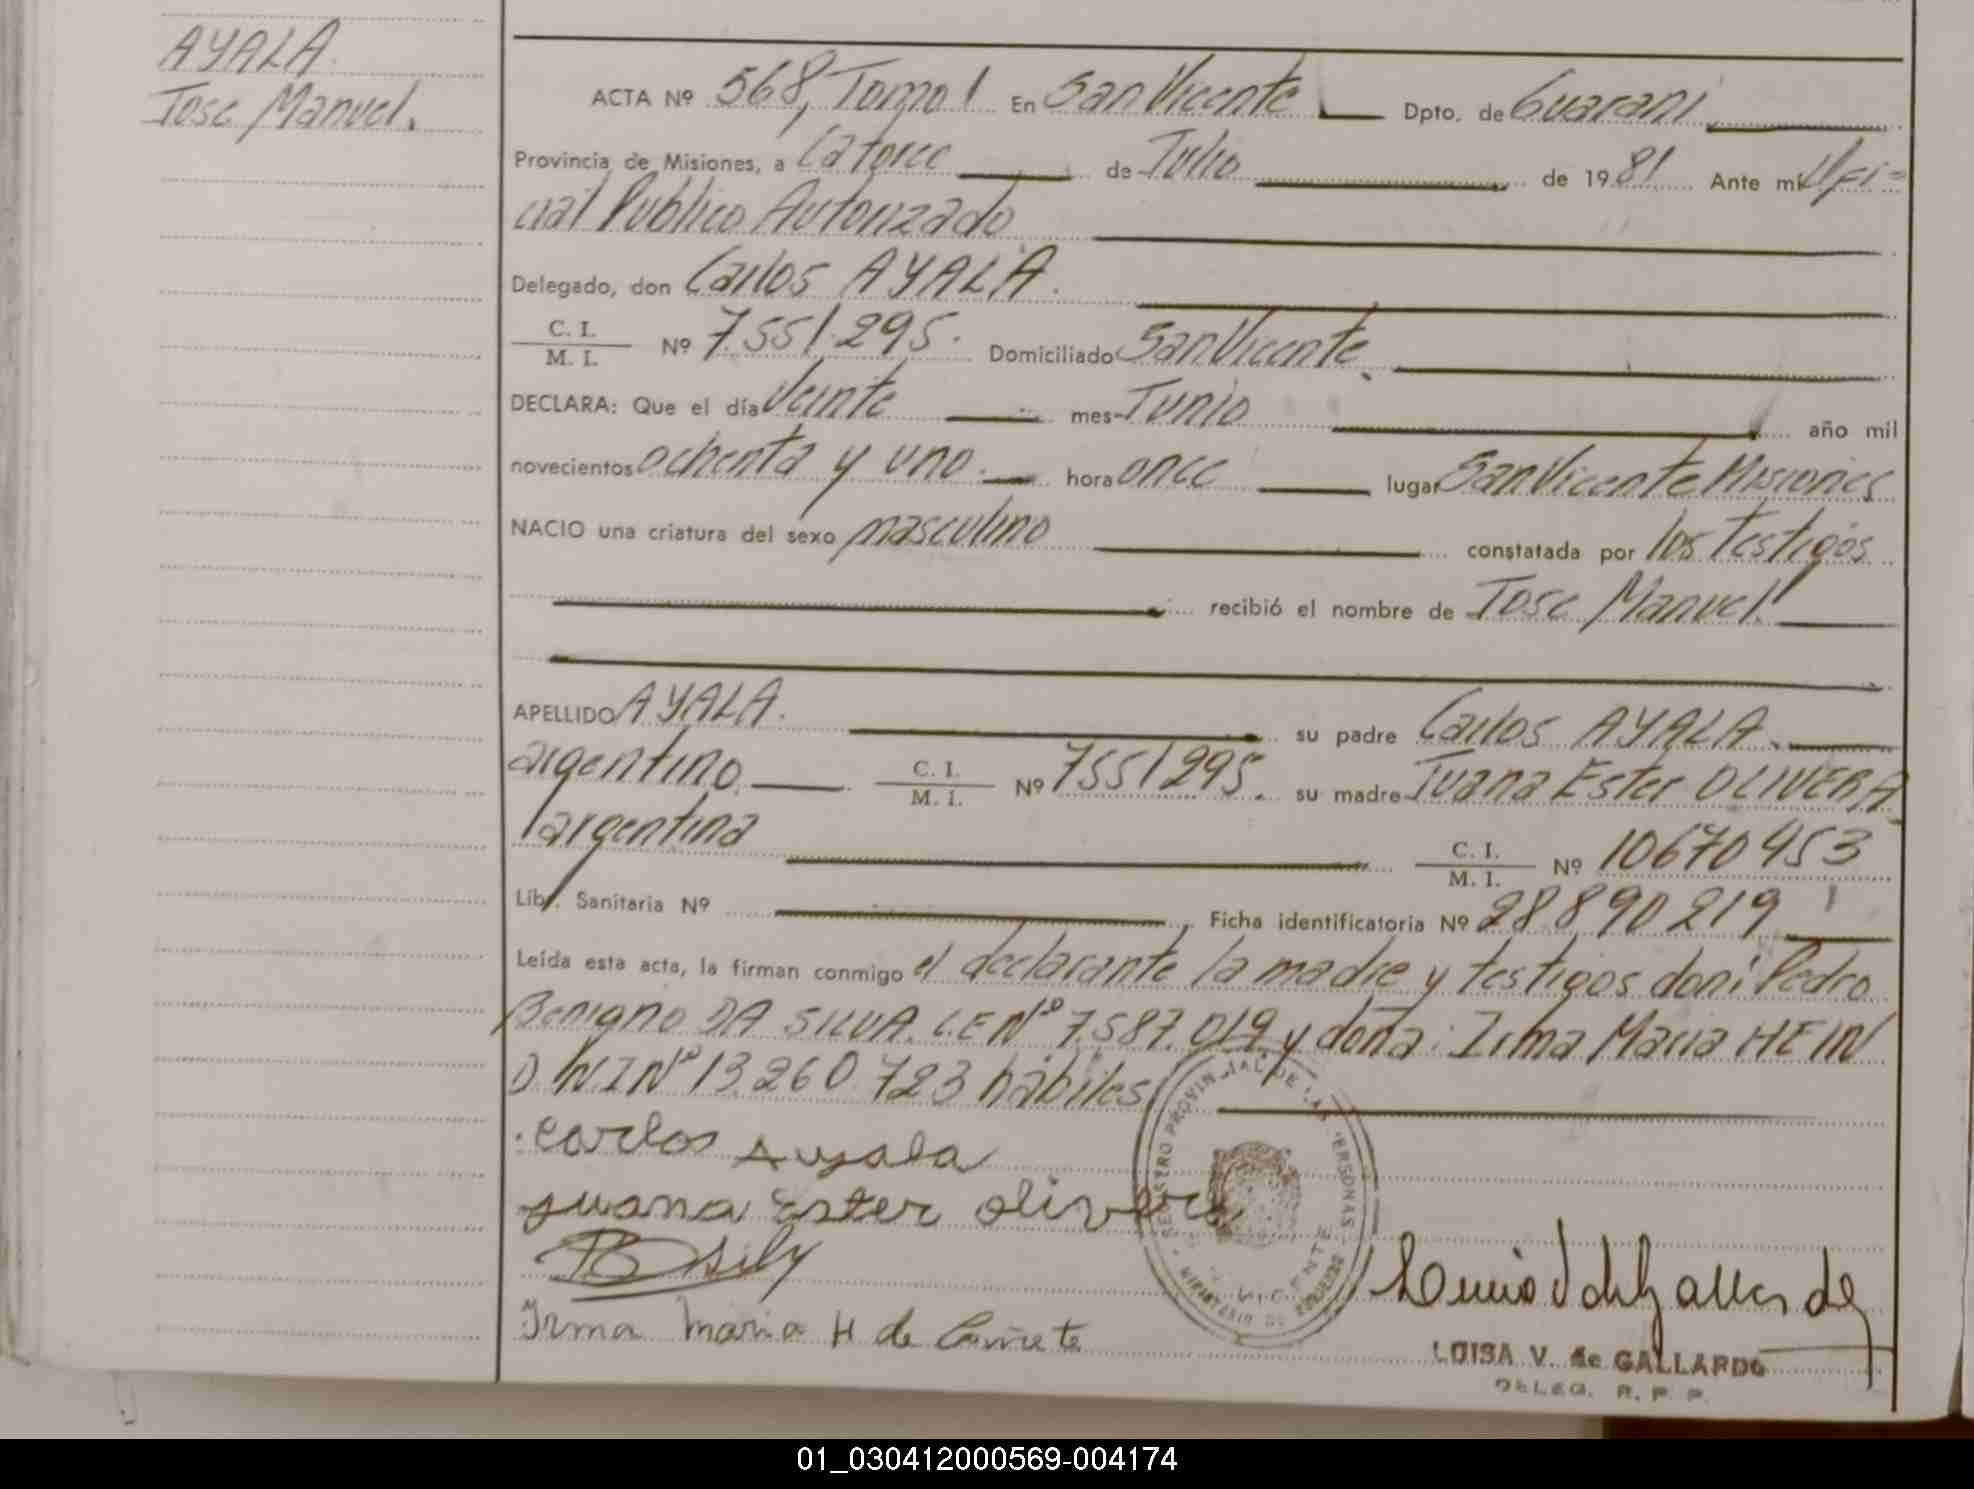 AYALA.
Jose Manuel.
ACTA Nº 568, Tomo I En San Vicente Dpto. de Guarani
Provincia de Misiones, a Catorce de Julio de 1981 Ante mi Ofi-
cial Publico Autorizado
Delegado, don Carlos AYALA.
C. I.
M. I. Nº 7.551.295. Domiciliado San Vicente.
DECLARA: Que el día Veinte mes Junio año mil
novecientos ochenta y uno. hora once lugar San Vicente Misiones
NACIO una criatura del sexo masculino constatada por los testigos
recibió el nombre de Jose Manuel.
APELLIDO AYALA. su padre Carlos AYALA.
argentino. C. I. M. I. Nº 7551295. su madre Juana Ester OLIVERA
argentina C. I. M. I. Nº 10670453
Libr. Sanitaria Nº Ficha identificatoria Nº 28.890219
Leída esta acta, la firman conmigo el declarante, la madre y testigos don: Pedro
Benigno DA SILVA. L.E Nº 7.587.019 y doña: Irma Maria HEIN
D.N.I Nº 13.260.723 hábiles
Carlos Ayala
juana Ester olivera
Irma Maria H de Cañete
REGISTRO PROVINCIAL DE LAS PERSONAS
LUISA V. de GALLARDO
DELEG. R. P. P.
01_030412000569-004174